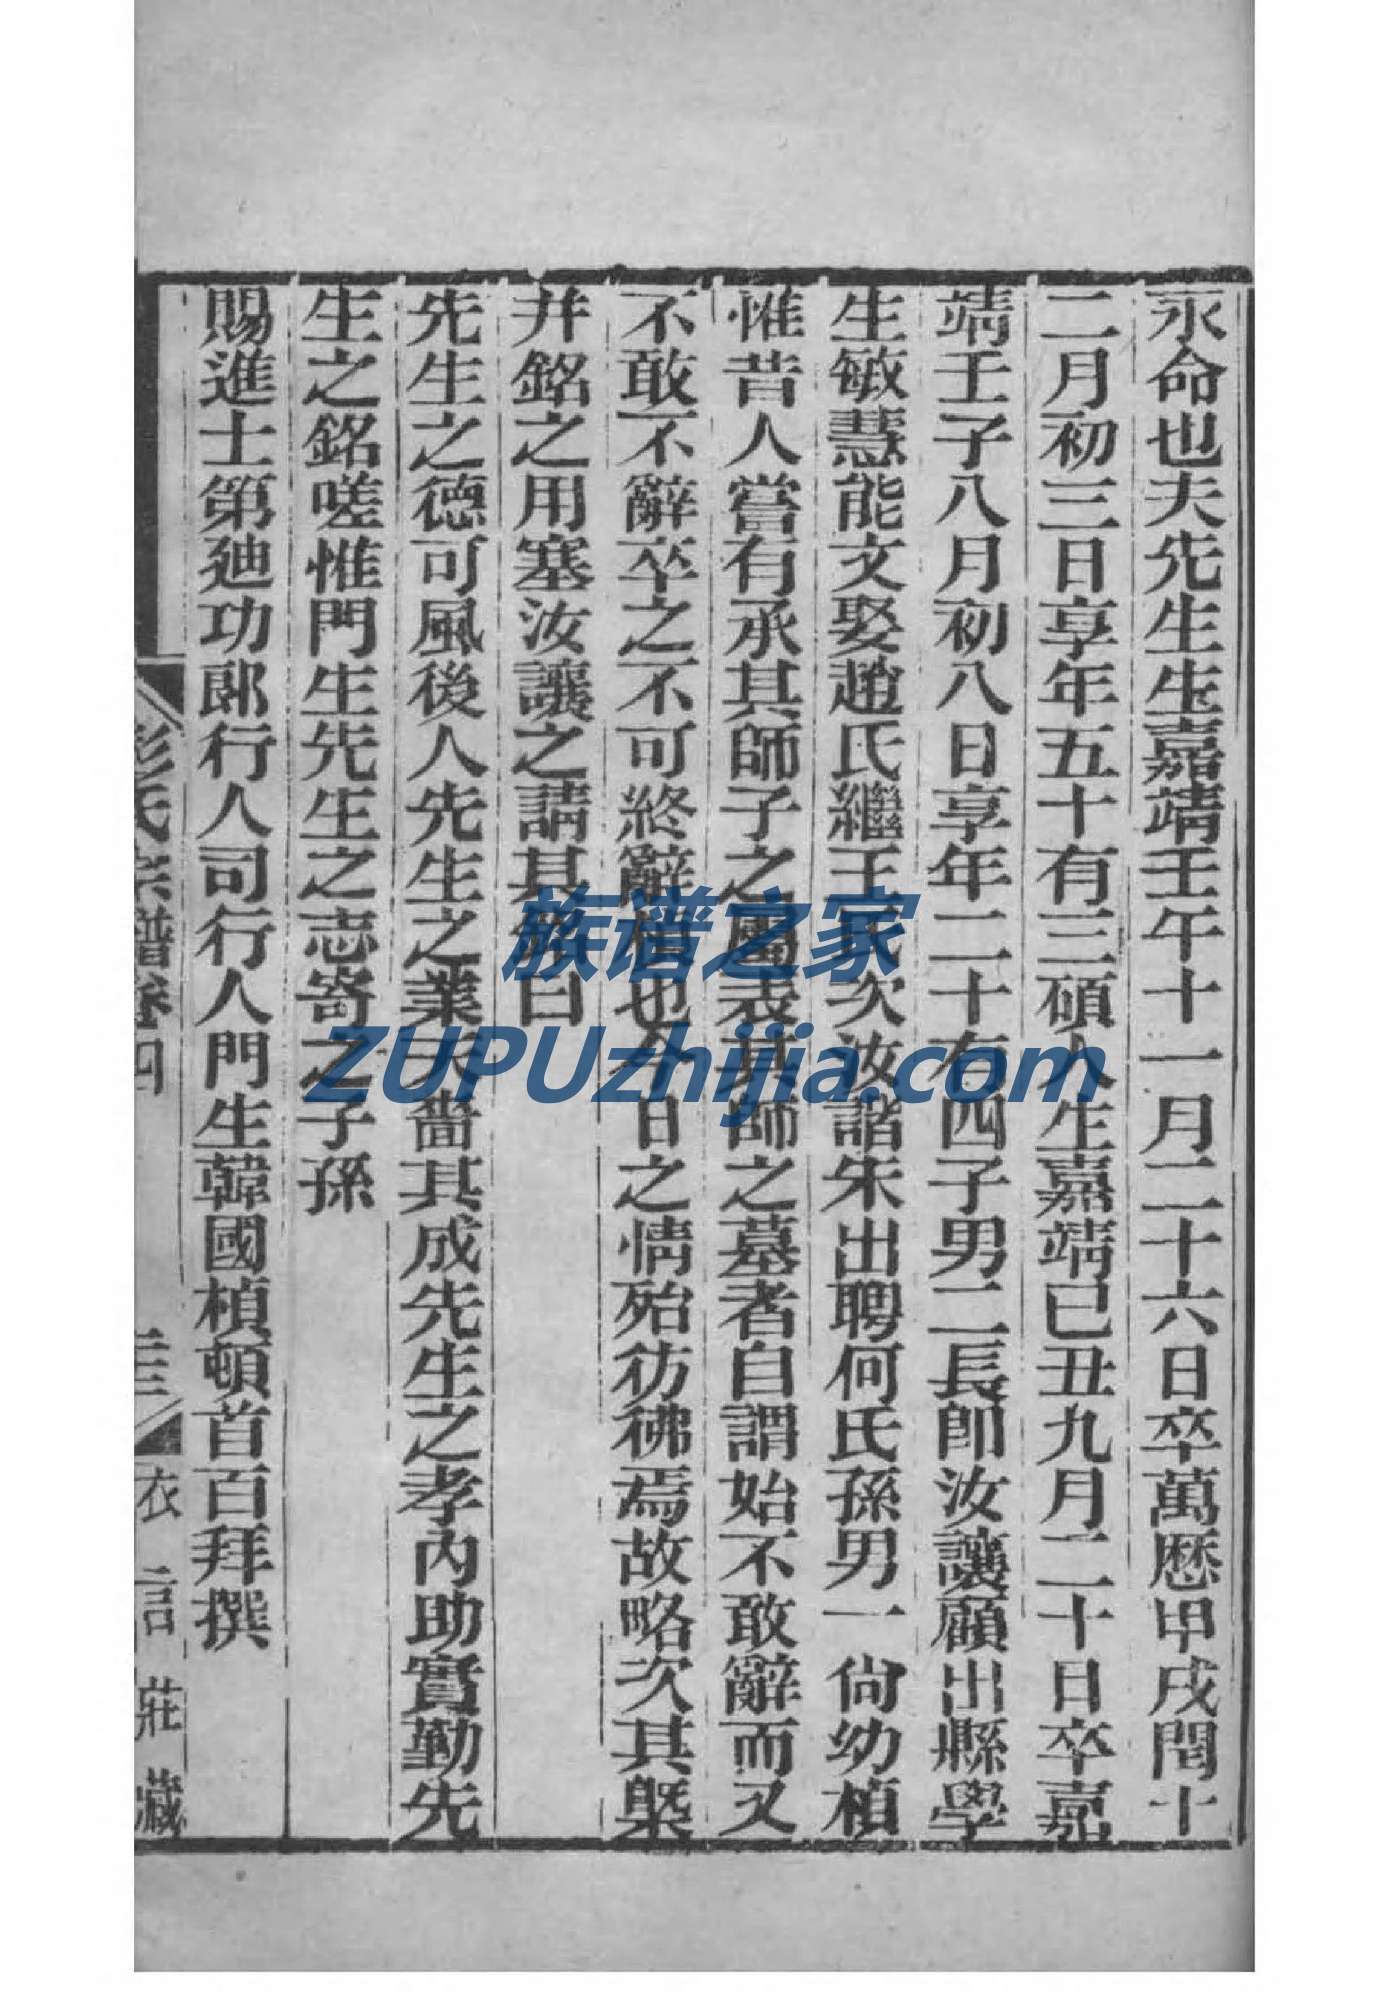 永命也夫先生生嘉靖壬午十一月二十六日卒萬歷甲戌閏十
二月初三日享年五十有三碩人生嘉靖已丑九月二十日卒嘉
靖壬子八月初八日享年二十有四子男二長卽汝讓顧出縣學
生敏慧能文娶趙氏繼王氏次汝諧朱出聘何氏孫男一尙幼楨
惟昔人嘗有承其師子之屬表其師之墓者自謂始不敢辭而又
不敢不辭卒之不可終辭楨也今日之情殆彷彿焉故略次其槩
并銘之用塞汝讓之請其辭曰
先生之德可風後人先生之業天嗇其成先生之孝內助實勤先
生之銘嗟惟門生先生之志寄之子孫
賜進士第廸功郎行人司行人門生韓國楨頓首百拜撰
彭氏宗譜卷四
三
衣言莊藏
族谱之家
ZUPUzhijia.com